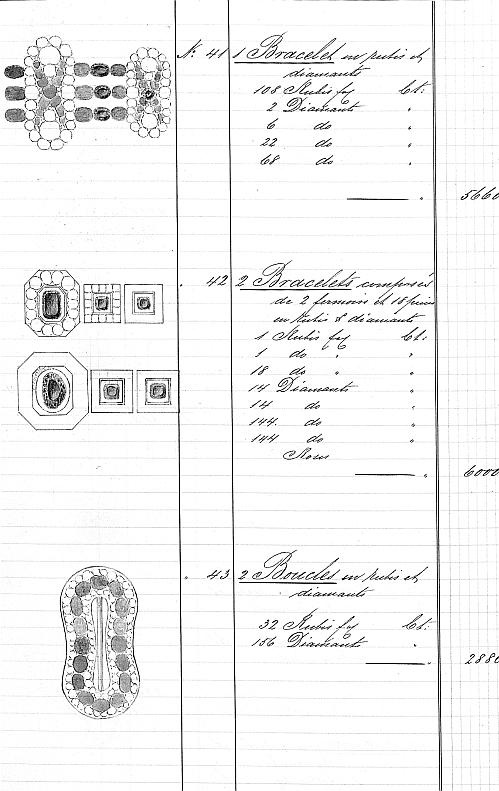 N: 41 1 Bracelet en rubis et
diamants
108 Rubis fg Ct:
2 Diamants "
6 do "
22 do "
68 do "
" 5660
" 42 2 Bracelets composés
de 2 fermoirs et 18 pièces
en Rubis & diamants
1 Rubis fg Ct:
1 do " "
18 do " "
14 Diamants "
14 do "
144. do "
144 do "
Roses
" 6000
" 43 2 Boucles en rubis et
diamants
32 Rubis fg Ct:
156 Diamants "
" 2880